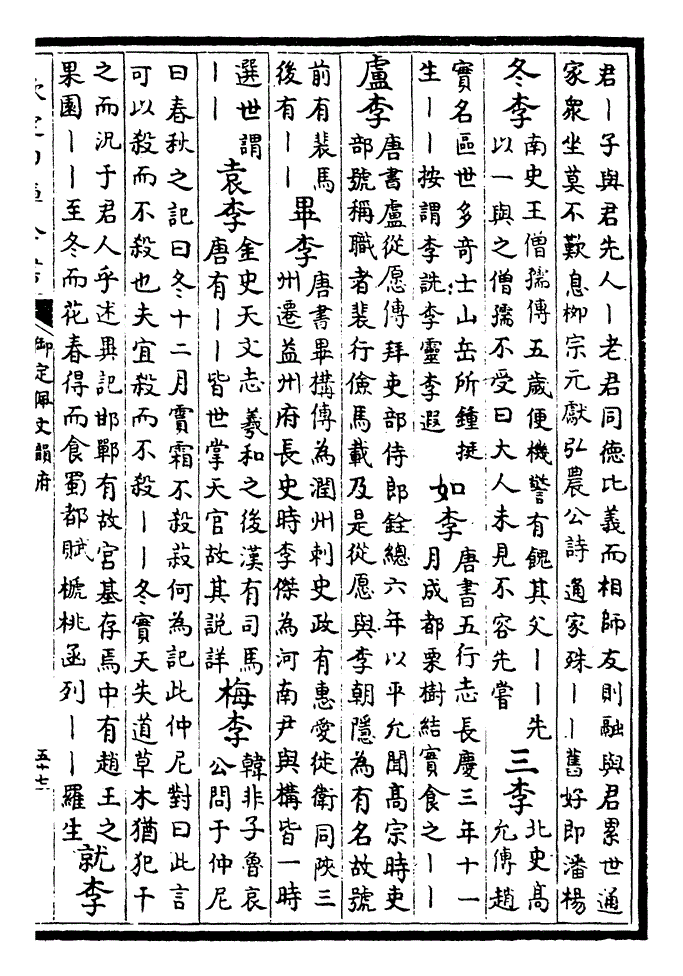 君丨子與君先人丨老君同德比義而相師友則融與君累世通
家衆坐莫不歎息栁宗元獻弘農公詩通家殊丨丨舊好即潘楊
冬李
南史王僧孺傳五歳便機警有餽其父丨丨先
以一與之僧孺不受曰大人未見不容先嘗
三李
北史髙
允傳趙
實名區世多竒士山岳所鍾挺
生丨丨按謂李詵李靈李遐
如李
唐書五行志長慶三年十一
月成都栗樹結實食之丨丨
盧李
唐書盧從愿傳拜吏部侍郎銓總六年以平允聞髙宗時吏
部號稱職者裴行儉馬載及是從愿與李朝隱為有名故號
前有裴馬
後有丨丨
畢李
唐書畢構傳為潤州刺史政有惠愛徙衛同陜三
州遷益州府長史時李傑為河南尹與構皆一時
選世謂
丨丨
袁李
金史天文志羲和之後漢有司馬
唐有丨丨皆世掌天官故其説詳
梅李
韓非子魯哀
公問于仲尼
曰春秋之記曰冬十二月霣霜不殺菽何為記此仲尼對曰此言
可以殺而不殺也夫宜殺而不殺丨丨冬實天失道草木猶犯干
之而況于君人乎述異記邯鄲有故宫基存焉中有趙王之
果園丨丨至冬而花春得而食蜀都賦榹桃函列丨丨羅生
就李
欽定四庫全書
御定佩文韻府
五十七